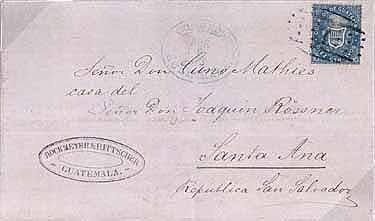 Señor Don Cuno Mathies
casa del
Señor Don Joaquin Rössner
Santa Ana
Republica San Salvador
BOCKMEYER & RITTSCHER
GUATEMALA.